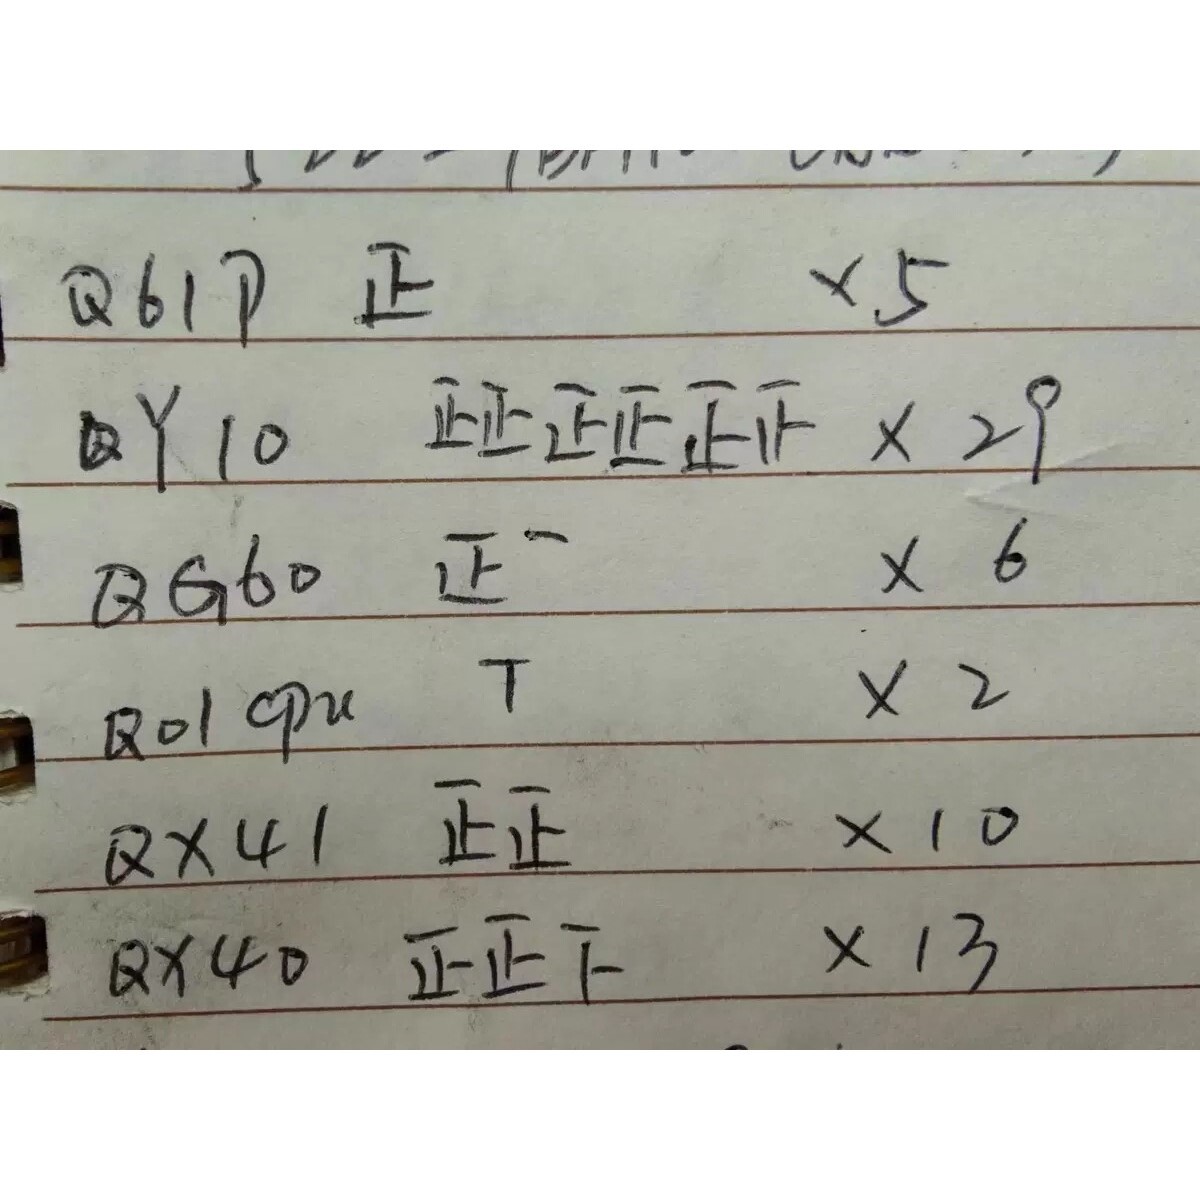 Q61P 正 ×5
QY10 正正正正正止 ×29
QG60 正一 ×6
Q01cpu T ×2
QX41 正正 ×10
QX40 正正下 ×13